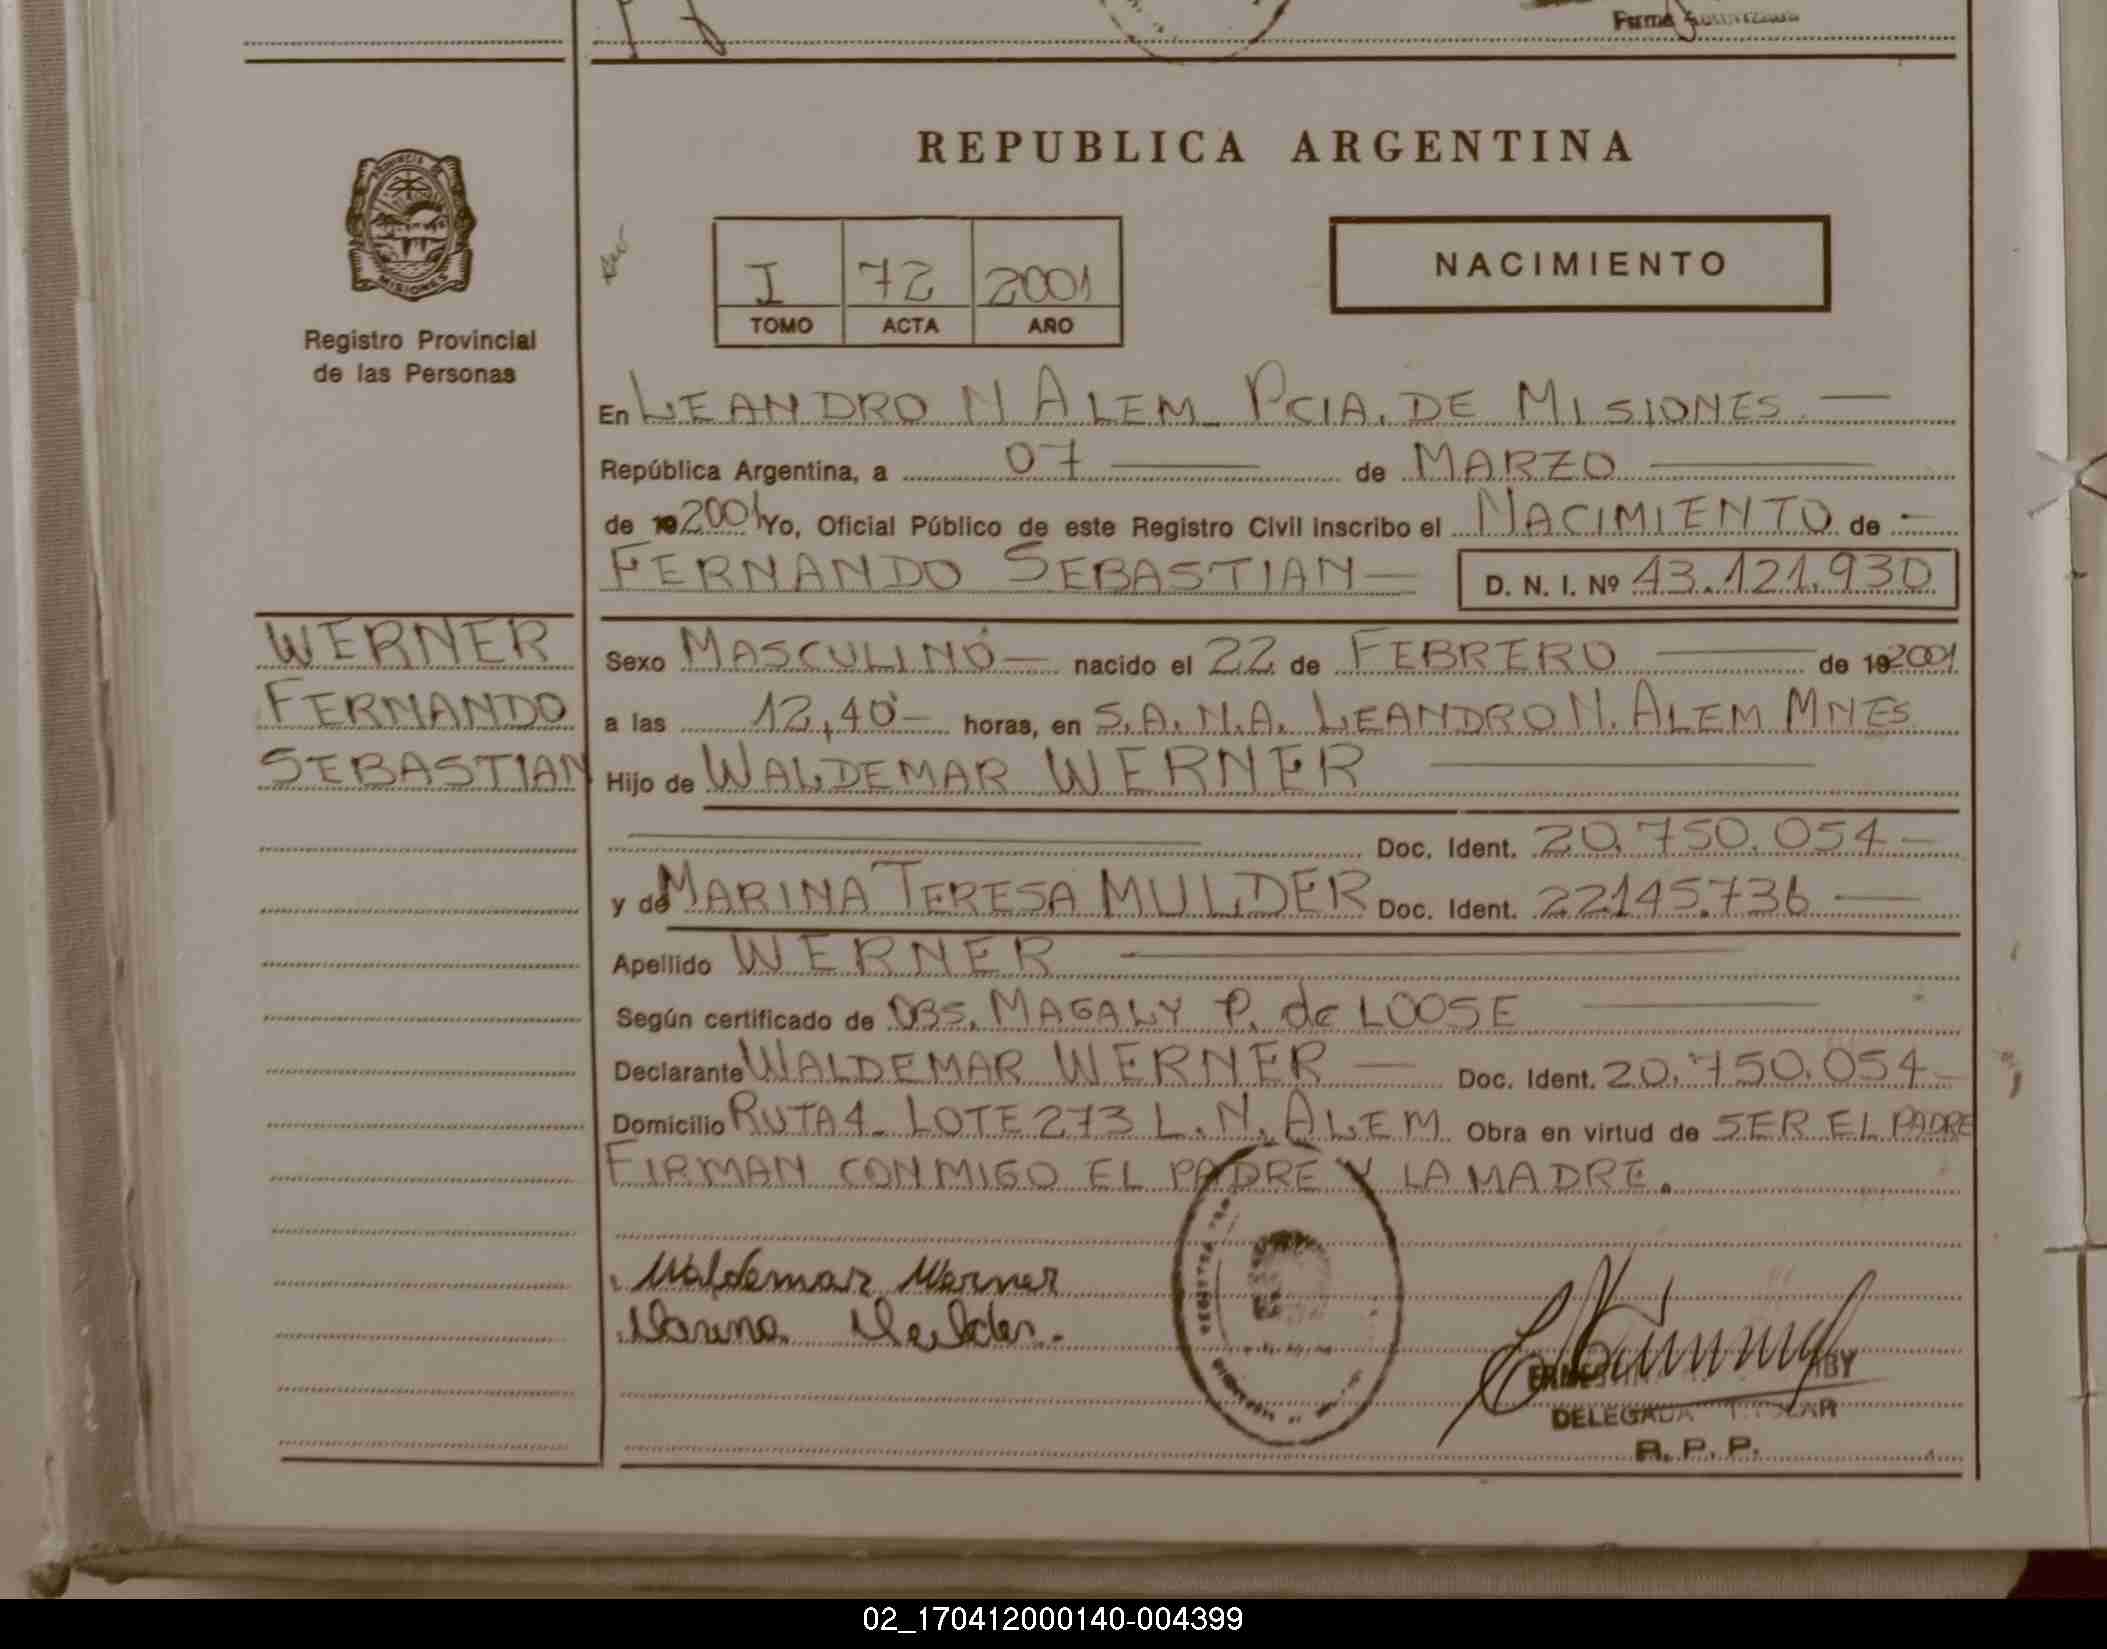 Firma Autorizada
PROVINCIA DE
MISIONES
Registro Provincial
de las Personas
REPUBLICA ARGENTINA
I 72 2001
TOMO ACTA AÑO
NACIMIENTO
En LEANDRO N ALEM PCIA. DE MISIONES
República Argentina, a 07 de MARZO
de 19 2001 Yo, Oficial Público de este Registro Civil inscribo el NACIMIENTO de
FERNANDO SEBASTIAN D. N. I. Nº 43.121.930
WERNER
FERNANDO
SEBASTIAN
Sexo MASCULINO nacido el 22 de FEBRERO de 19 2001
a las 12,40 horas, en S.A.N.A. LEANDRO N. ALEM MNES
Hijo de WALDEMAR WERNER
Doc. Ident. 20.750.054
y de MARINA TERESA MULDER Doc. Ident. 22145.736
Apellido WERNER
Según certificado de OBS. MAGALY P. de LOOSE
Declarante WALDEMAR WERNER Doc. Ident. 20.750.054
Domicilio RUTA 4 LOTE 273 L. N. ALEM Obra en virtud de SER EL PADRE
FIRMAN CONMIGO EL PADRE Y LA MADRE.
Waldemar Werner
Marina Mulder.
DELEGADA TITULAR
R. P. P.
02_170412000140-004399